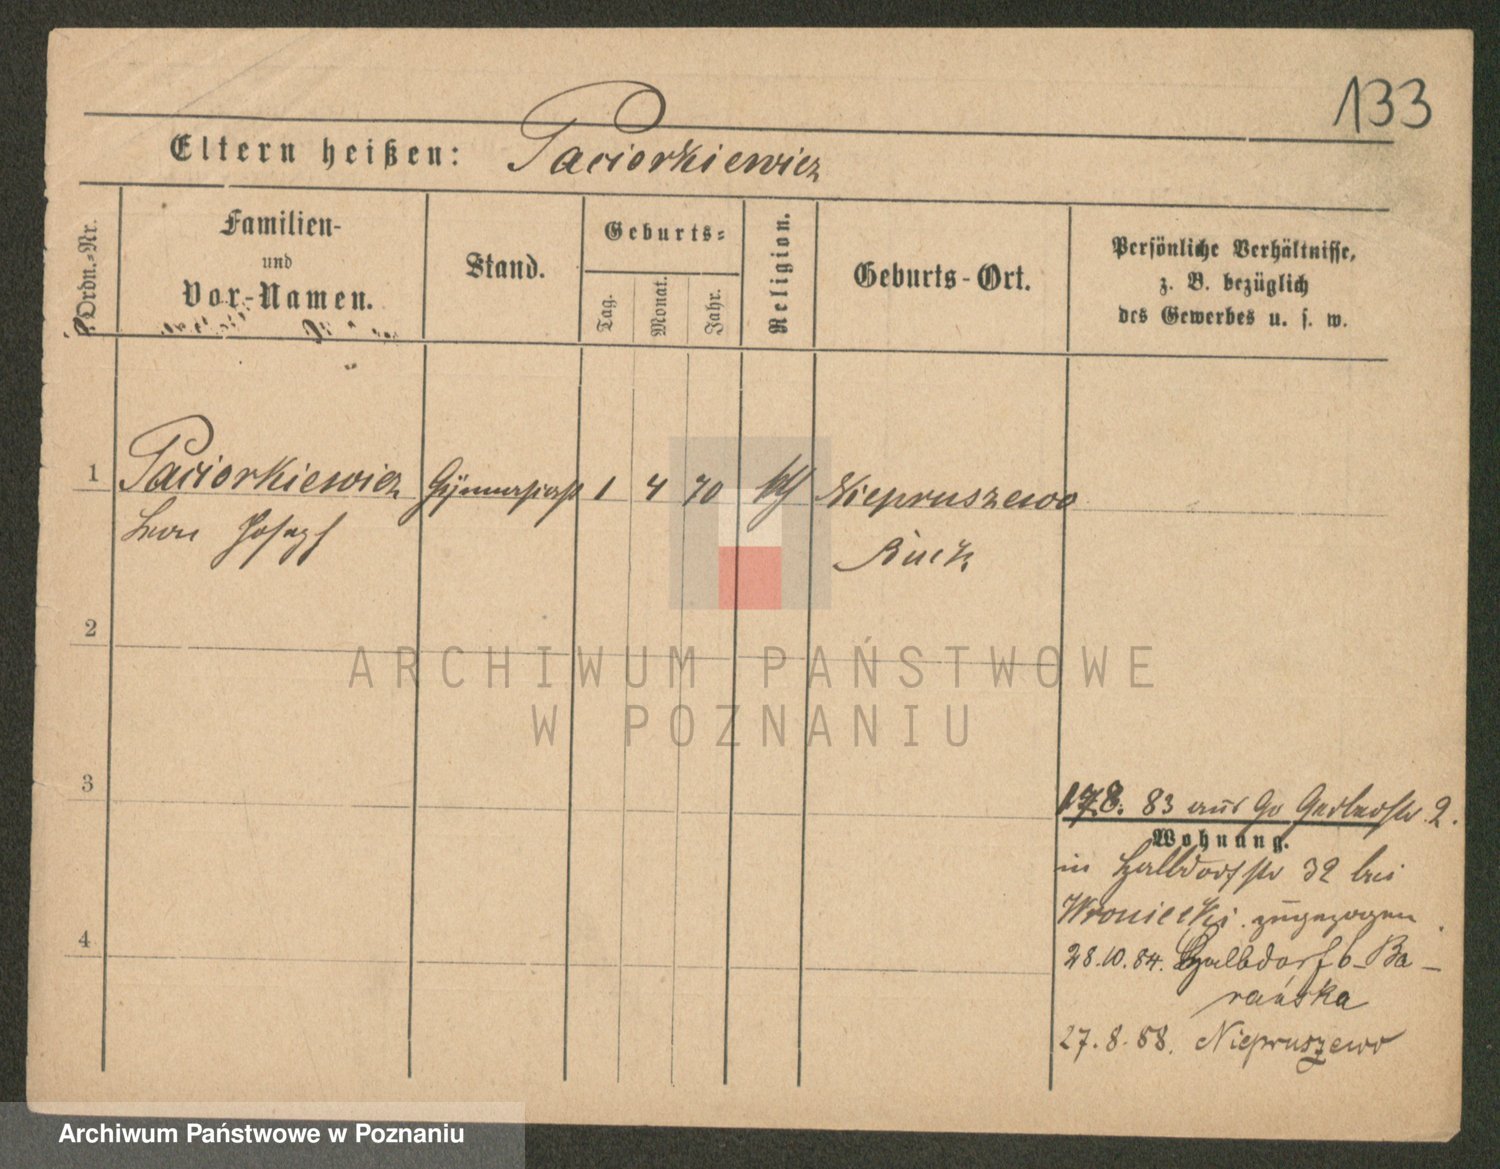 133
Eltern heißen: Paciorkiewicz
Ordn.-Nr.
Familien-
und
Vor-Namen.
Stand.
Geburts-
Tag.
Monat.
Jahr.
Religion.
Geburts-Ort.
Persönliche Verhältnisse,
z. B. bezüglich
des Gewerbes u. s. w.
1 Paciorkiewicz Gymnasiast 1 4 70 kth Niepruszewo
Leon Joseph Buck
2
ARCHIWUM PAŃSTWOWE
W POZNANIU
3
17.8. 83 aus Gr Gerberstr. 2.
Wohnung.
in Halbdorfstr 32 bei
Wroniecki zugezogen
4
28.10.84. Halbdorf 6 Ba-
rańska
27.8.88. Niepruszewo
Archiwum Państwowe w Poznaniu